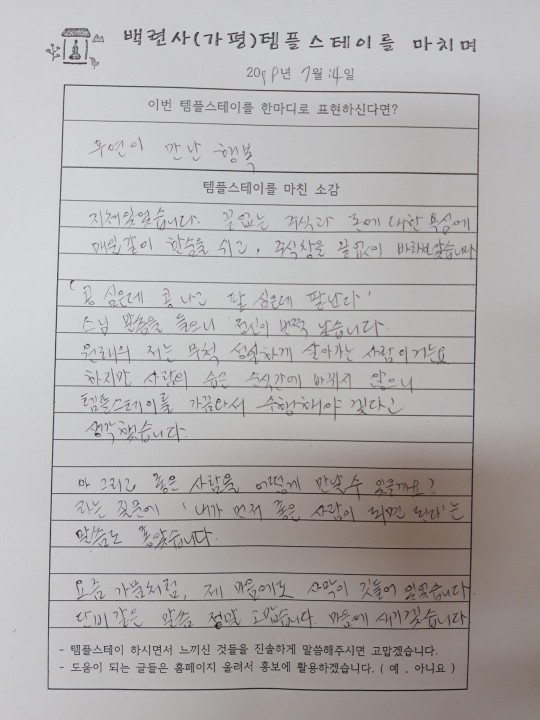 백련사(가평)템플스테이를 마치며
년 7월 14일
이번 템플스테이를 한마디로 표현하신다면?
우연이 만난 행복
템플스테이를 마친 소감
지쳐있었습니다. 끝없는 주식과 돈에 대한 욕심에
매일같이 한숨을 쉬고, 주식창을 끝없이 바라보았습니다
'콩 심은데 콩나고 팥 심은데 팥난다'
스님 말씀을 들으니 정신이 번쩍 났습니다.
원래의 저는 무척 성실하게 살아가는 사람이거든요
하지만 사람의 습은 순식간에 바뀌지 않으니
템플스테이를 가끔와서 수행해야 겠다고
생각했습니다.
아 그리고 좋은 사람을 어떻게 만날수 있을까요?
라는 질문에 '내가 먼저 좋은 사람이 되면 된다'는
말씀도 좋았습니다.
요즘 가뭄처럼, 제 마음에도 사막이 깃들어 있었습니다
단비같은 말씀 정말 고맙습니다. 마음에 새기겠습니다
- 템플스테이 하시면서 느끼신 것들을 진솔하게 말씀해주시면 고맙겠습니다.
- 도움이 되는 글들은 홈페이지 올려서 홍보에 활용하겠습니다. ( 예 , 아니요 )